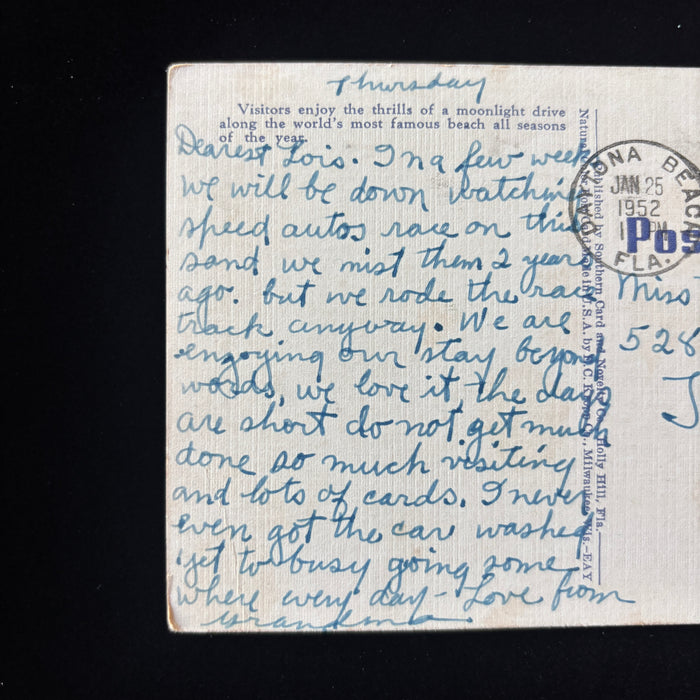 Thursday
Visitors enjoy the thrills of a moonlight drive
along the world's most famous beach all seasons
of the year.
Dearest Lois. In a few week
we will be down watchin
speed autos race on this
sand we mist them 2 year
ago. but we rode the race
track anyway. We are
engoying our stay beyond
words, we love it, the days
are short do not get much
done so much visiting
and lots of cards. I never
even got the car washed
yet to busy going some
where every day - Love from
Grandma.
Natural Published by Southern Card and Novelty Co., Holly Hill, Fla.
Made in U.S.A. by E. C. Kropp Co., Milwaukee, Wis.—EAY
DAYTONA BEACH
JAN 25
1952
PM
FLA.
Pos
Miss
528